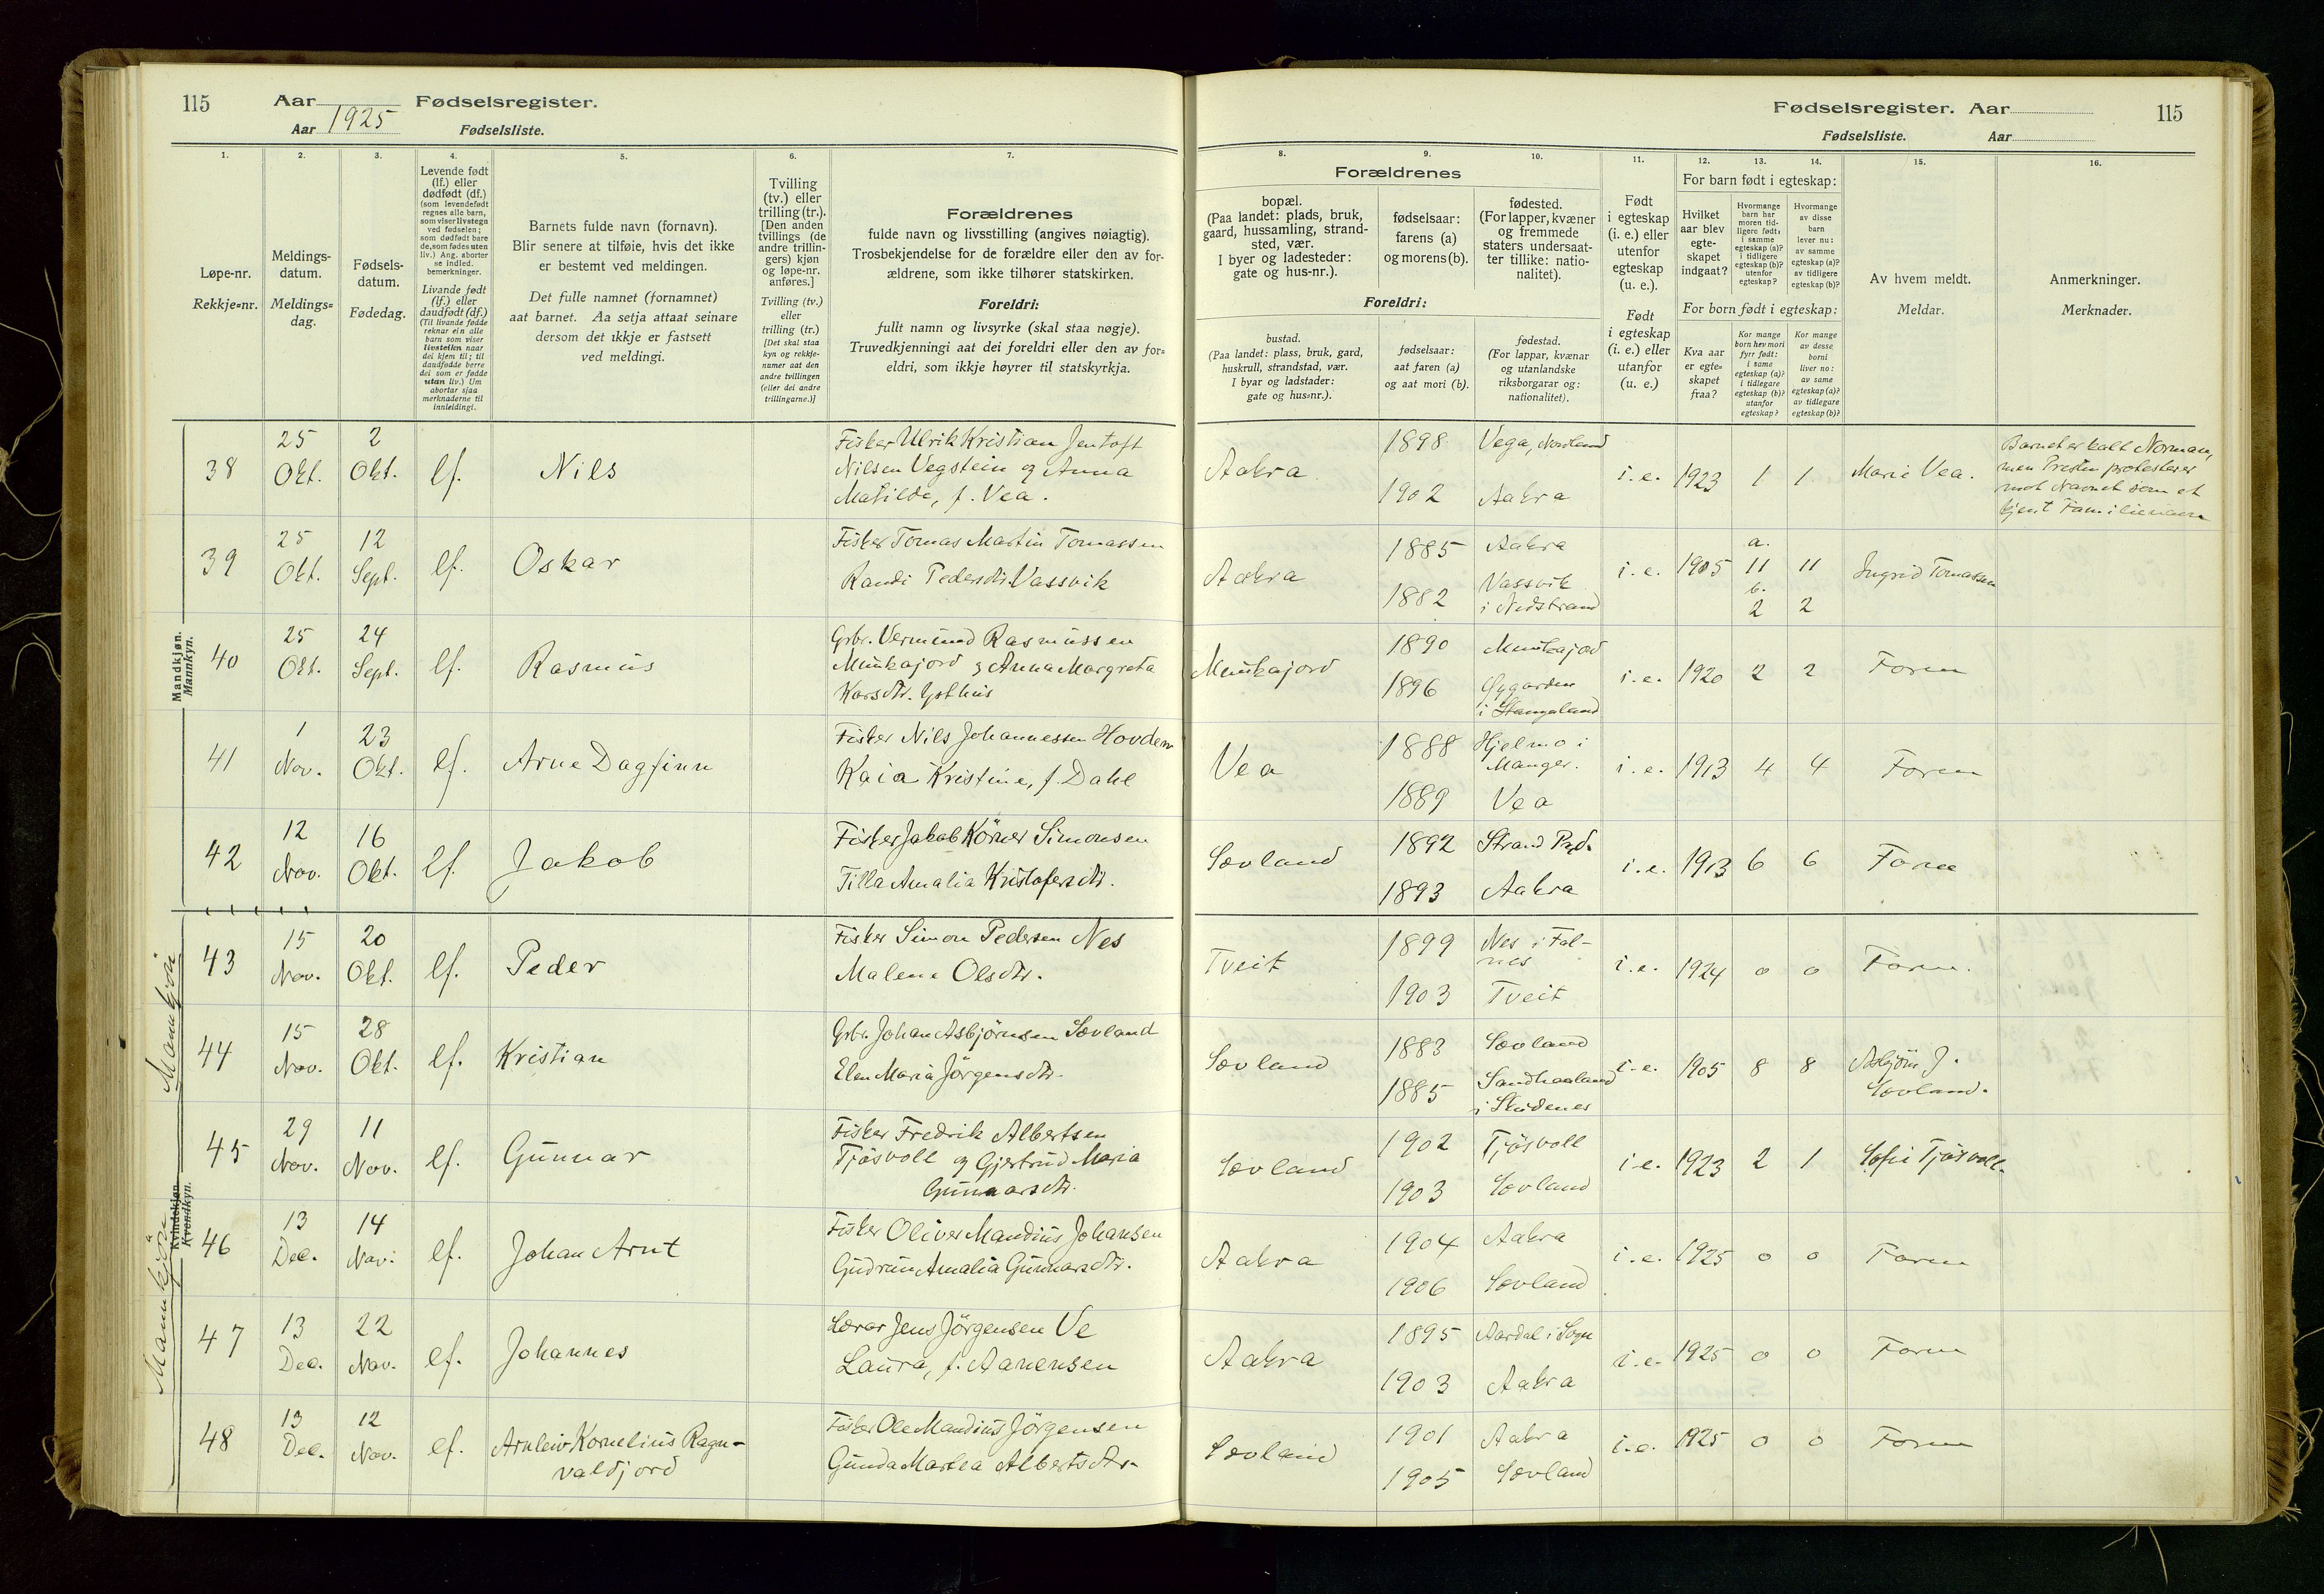 115 Aar Fødselsregister.
Aar 1925 Fødselsliste.
1. 2. 3. 4. 5. 6. 7.
Løpe-nr.
Rekkje=nr.
Meldings-
datum.
Meldings=
dag.
Fødsels-
datum.
Fødedag.
Levende født
(lf.) eller
dødfødt (df.)
(som levendefødt
regnes alle barn,
som viser livstegn
ved fødselen;
som dødfødt bare
de, som fødes uten
liv.) Ang. aborter
se indled.
bemerkninger.
Livande født
(lf.) eller
daudfødt (df.)
(Til livande fødde
reknar ein alle
barn som viser
livsteikn naar
dei kjem til; til
daudfødde berre
dei som er fødde
utan liv.) Um
abortar sjaa
merknaderne til
innleidingi.
Barnets fulde navn (fornavn).
Blir senere at tilføie, hvis det ikke
er bestemt ved meldingen.
Det fulle namnet (fornamnet)
aat barnet. Aa setja attaat seinare
dersom det ikkje er fastsett
ved meldingi.
Tvilling
(tv.) eller
trilling (tr.).
[Den anden
tvillings (de
andre trillin-
gers) kjøn
og løpe-nr.
anføres.]
Tvilling (tv.)
eller
trilling (tr.)
[Det skal staa
kyn og rekkje-
numer aat den
andre tvillingen
(eller dei andre
trillingarne.)]
Forældrenes
fulde navn og livsstilling (angives nøiagtig).
Trosbekjendelse for de forældre eller den av for-
ældrene, som ikke tilhører statskirken.
Foreldri:
fullt namn og livsyrke (skal staa nøgje).
Truvedkjenningi aat dei foreldri eller den av for=
eldri, som ikkje høyrer til statskyrkja.
Mandkjøn.
Mannkyn.
38 25 Okt. 2 Okt. lf. Nils
Fisker Ulrik Kristian Jentoft
Nilsen Vegstein og Anna
Matilde, f. Vea.
39 25 Okt. 12 Sept. lf. Oskar
Fisker Tomas Martin Tomassen
Randi Pedersdtr. Vassvik
40 25 Okt. 24 Sept. lf. Rasmus
Grbr. Vermund Rasmussen
Munkajord og Anna Margreta
Korsdtr. Ysthus
41 1 Nov. 23 Okt. lf. Arne Dagfinn
Fisker Nils Johannessen Hovden
Kaia Kristine, f. Dahl
42 12 Nov. 16 Okt. lf. Jakob
Fisker Jakob Körner Simonsen
Tilla Amalia Kristofersdtr.
Mannkjön
43 15 Nov. 20 Okt. lf. Peder
Fisker Simon Pedersen Nes
Malene Olsdtr.
44 15 Nov. 28 Okt. lf. Kristian
Grbr. Johan Asbjörnsen Sævland
Elen Maria Jörgensdtr.
45 29 Nov. 11 Nov. lf. Gunnar
Fisker Fredrik Albertsen
Tjösvoll og Gjertrud Maria
Gunnarsdtr.
Kvindekjøn.
Kvendkyn.
Mannkjön
46 13 Dec. 14 Nov. lf. Johan Arnt
Fisker Oliver Mandius Johansen
Gudrun Amalia Gunnarsdtr.
47 13 Dec. 22 Nov. lf. Johannes
Lærar Jens Jörgensen Ve
Laura, f. Aanensen
48 13 Dec. 12 Nov. lf. Arnleiv Kornelius Ragn-
valdjord
Fisker Ole Mandius Jörgensen
Gunda Martea Albertsdtr.
Fødselsregister. Aar 115
Fødselsliste. Aar
8. 9. 10. 11. 12. 13. 14. 15. 16.
Forældrenes
bopæl.
(Paa landet: plads, bruk,
gaard, hussamling, strand-
sted, vær.
I byer og ladesteder:
gate og hus-nr.).
fødselsaar:
farens (a)
og morens (b).
fødested.
(For lapper, kvæner
og fremmede
staters undersaat-
ter tillike: natio-
nalitet).
Foreldri:
bustad.
(Paa landet: plass, bruk, gard,
huskrull, strandstad, vær.
I byar og ladstader:
gate og hus=nr.).
fødselsaar:
aat faren (a)
og aat mori (b).
fødestad.
(For lappar, kvænar
og utanlandske
riksborgarar og:
nationalitet).
Født
i egteskap
(i. e.) eller
utenfor
egteskap
(u. e.).
Født
i egteskap
(i. e.) eller
utanfor
(u. e.)
For barn født i egteskap:
Hvilket
aar blev
egte-
skapet
indgaat?
Hvormange
barn har
moren tid-
ligere født:
i samme
egteskap (a)?
i tidligere
egteskap (b)?
utenfor
egteskap?
Hvormange
av disse
barn
lever nu:
av samme
egteskap (a)?
av tidligere
egteskap (b)?
For born født i egteskap:
Kva aar
er egte=
skapet
fraa?
Kor mange
born hev mori
fyrr født:
i same
egteskap (a)?
i tidlegare
egteskap (b)?
utanfor
egteskap?
Kor mange
av desse
borni
liver no:
av same
egteskap (a)?
av tidlegare
egteskap (b)?
Av hvem meldt.
Meldar.
Anmerkninger.
Merknader.
Aakra 1898 Vega, Nordland
1902 Aakra
i. e. 1923 1 1 Marie Vea.
Barnet er kalt Norman,
men Presten protesterer
mot Navnet som et
kjent Familienavn
Aakra 1885 Aakra
1882 Vassvik
i Nedstrand
i. e. 1905 a. 11 11
b. 2 2
Ingrid Tomassen
Munkajord 1890 Munkajord
1896 Øygarden
i Stangeland
i. e. 1920 2 2 Faren
Vea 1888 Hjelmo i
Manger.
1889 Vea
i. e. 1913 4 4 Faren
Sævland 1892 Strand Prd.
1893 Aakra
i. e. 1913 6 6 Faren
Tveit 1899 Nes i Fal-
nes
1903 Tveit
i. e. 1924 0 0 Faren.
Sævland 1883 Sævland
1885 Sandhaaland
i Skudenes
i. e. 1905 8 8 Asbjörn J.
Sævland.
Sævland 1902 Tjösvoll
1903 Sævland
i. e. 1923 2 1 Sofie Tjösvoll.
Aakra 1904 Aakra
1906 Sævland
i. e. 1925 0 0 Faren
Aakra 1895 Aardal i Sogn
1903 Aakra
i. e. 1925 0 0 Faren
Sævland 1901 Aakra
1905 Sævland
i. e. 1925 0 0 Faren